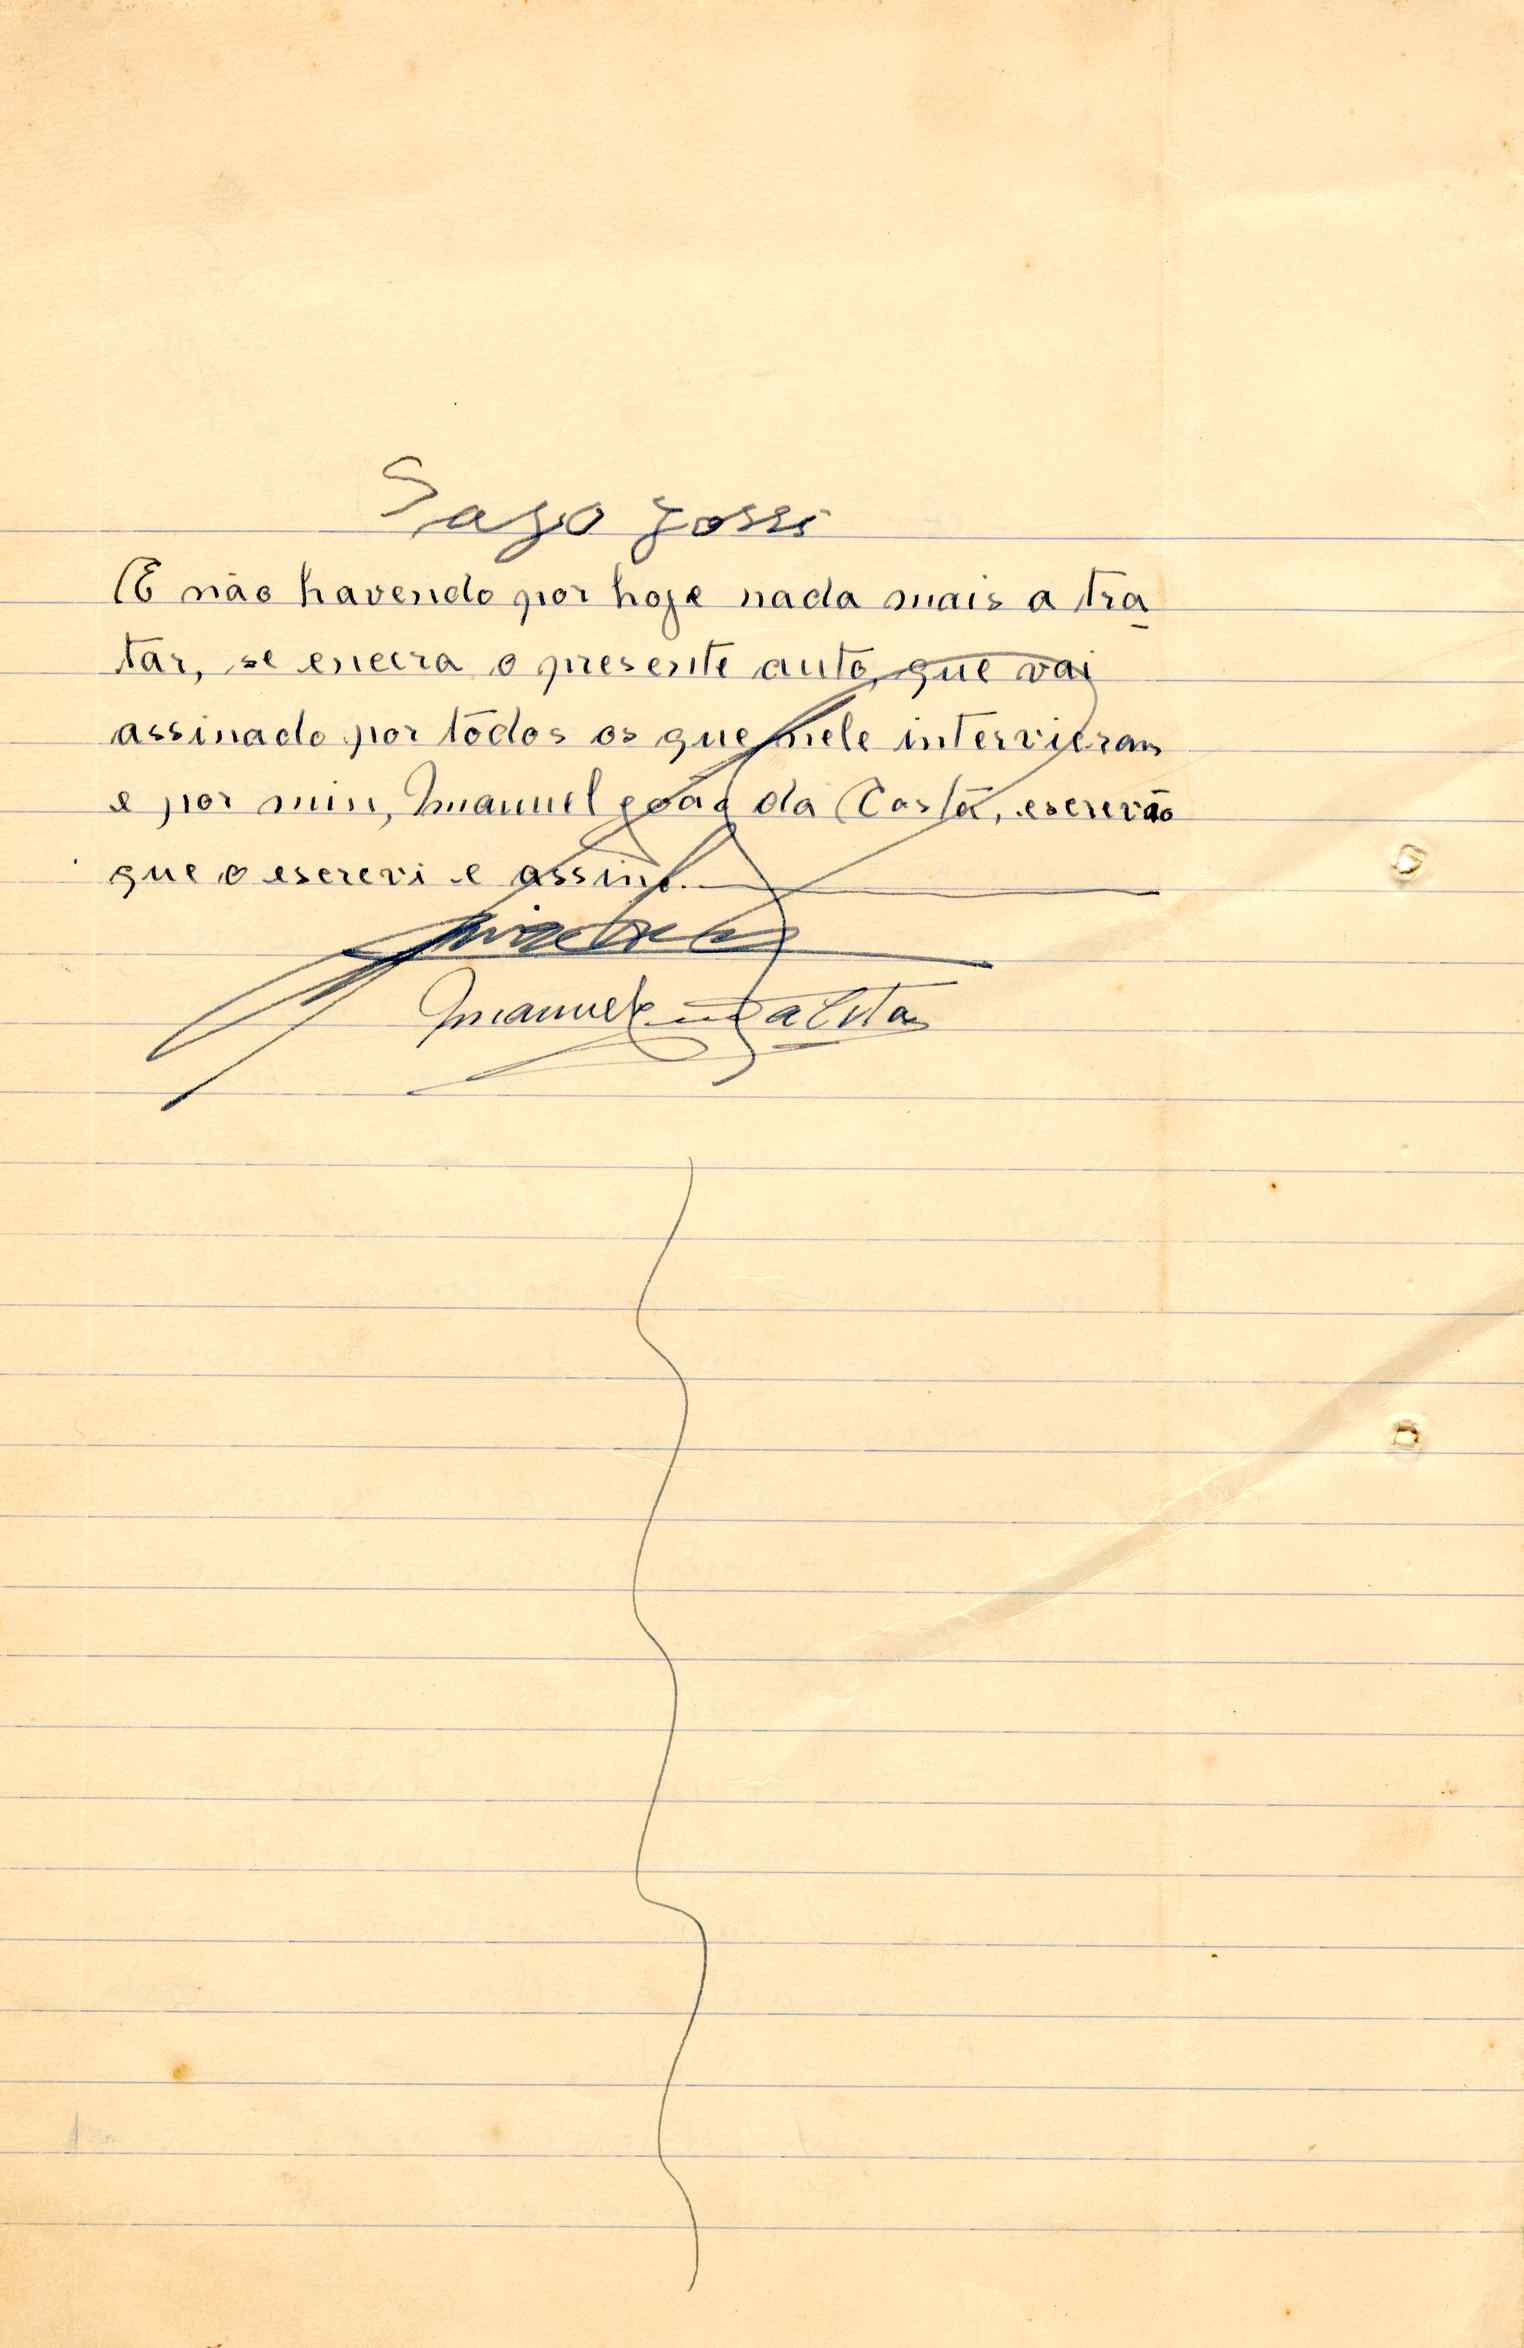 E não havendo por hoje nada mais a tra
tar, se encerra o presente auto, que vai
assinado por tôdos os que nele intervieram
e por mim, Manuel João da Costa, escrivão
que o escrevi e assino.
Manuel